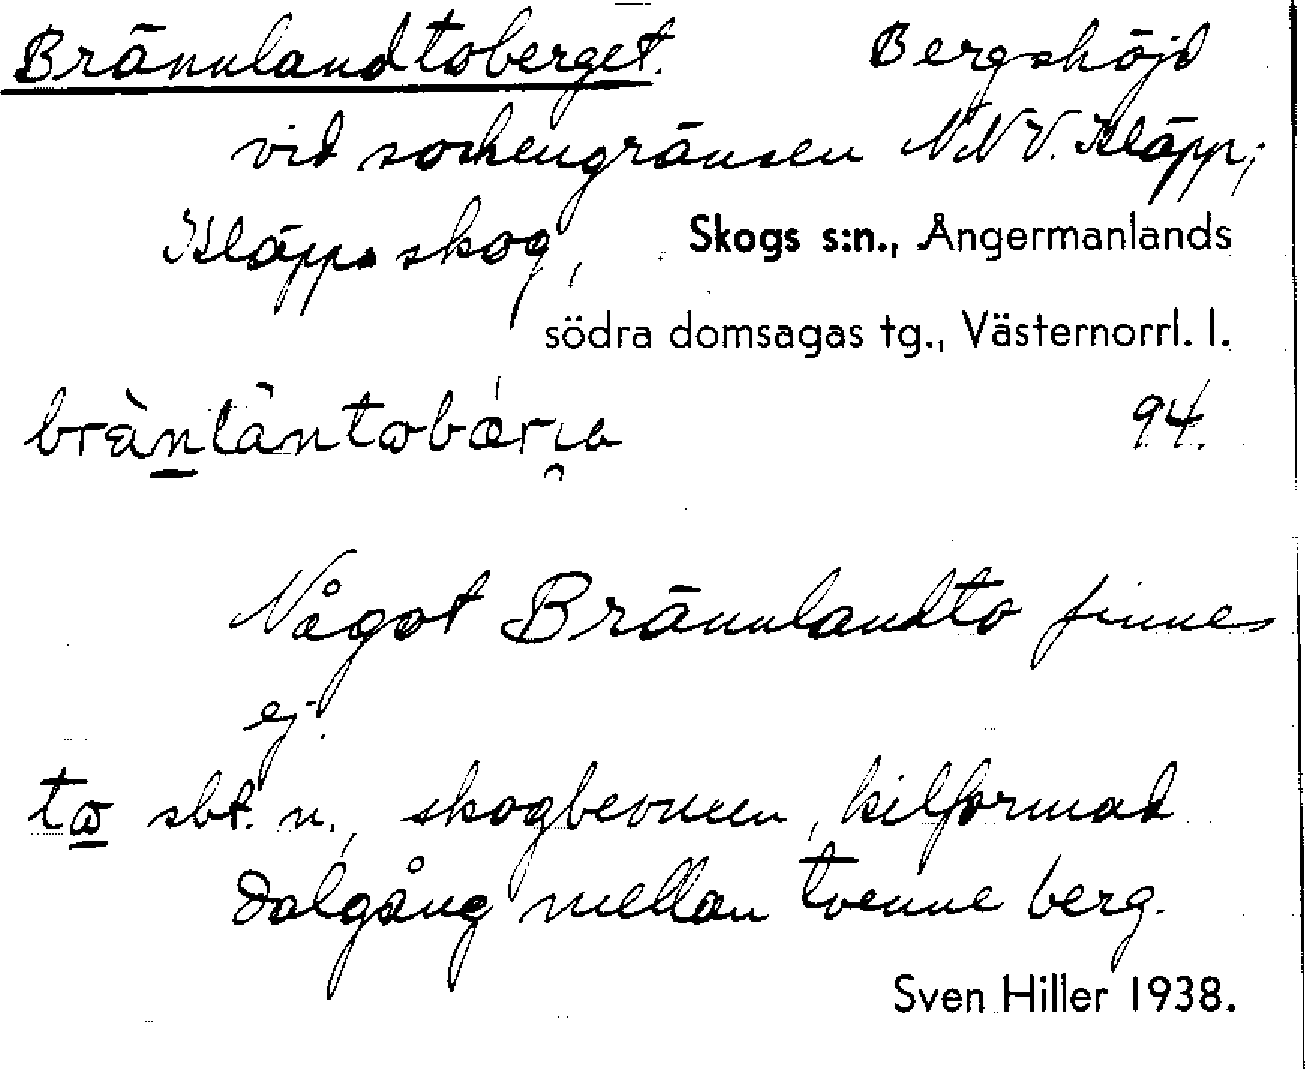 Brännlandtoberget. Bergshöjd
vid sockengränsen NNV. Kläpp;
Kläpps skog, Skogs s:n., Ångermanlands
södra domsagas tg., Västernorrl. l.
94.
Något Brännlandto finnes
ej.
to sbt. n., skogbevuxen, kilformad
dalgång mellan tvenne berg.
Sven Hiller 1938.